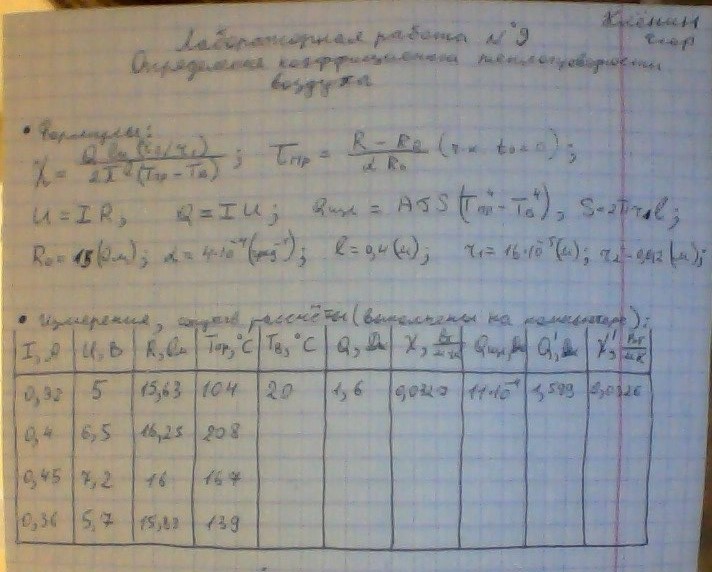 Клёнин
Егор
Лабораторная работа №9
Определение коэффициента теплопроводности
воздуха
• Формулы:
χ = Q ln(r₂/r₁) / 2π l (Tпр − Tв); Tпр = R − R₀ / α R₀ (т.к. t₀ = 0);
U = IR, Q = IU; Qизл = AσS(Tпр⁴ − Tв⁴), S = 2πr₁l;
R₀ = 15 (Ом); α = 4·10⁻⁴ (град⁻¹); l = 0,4 (м); r₁ = 16·10⁻⁵ (м); r₂ = 0,012 (м);
• Измерения, рассчёты (выполнены на компьютере):
I, А U, В R, Ом Tпр, °C Tв, °C Q, χ, Вт/мК Qизл, Q', χ', Вт/мК
0,32 5 15,63 104 20 1,6 0,0320 11·10⁻⁴ 1,599
0,4 6,5 16,25 208
0,45 7,2 16 167
0,36 5,7 15,83 139